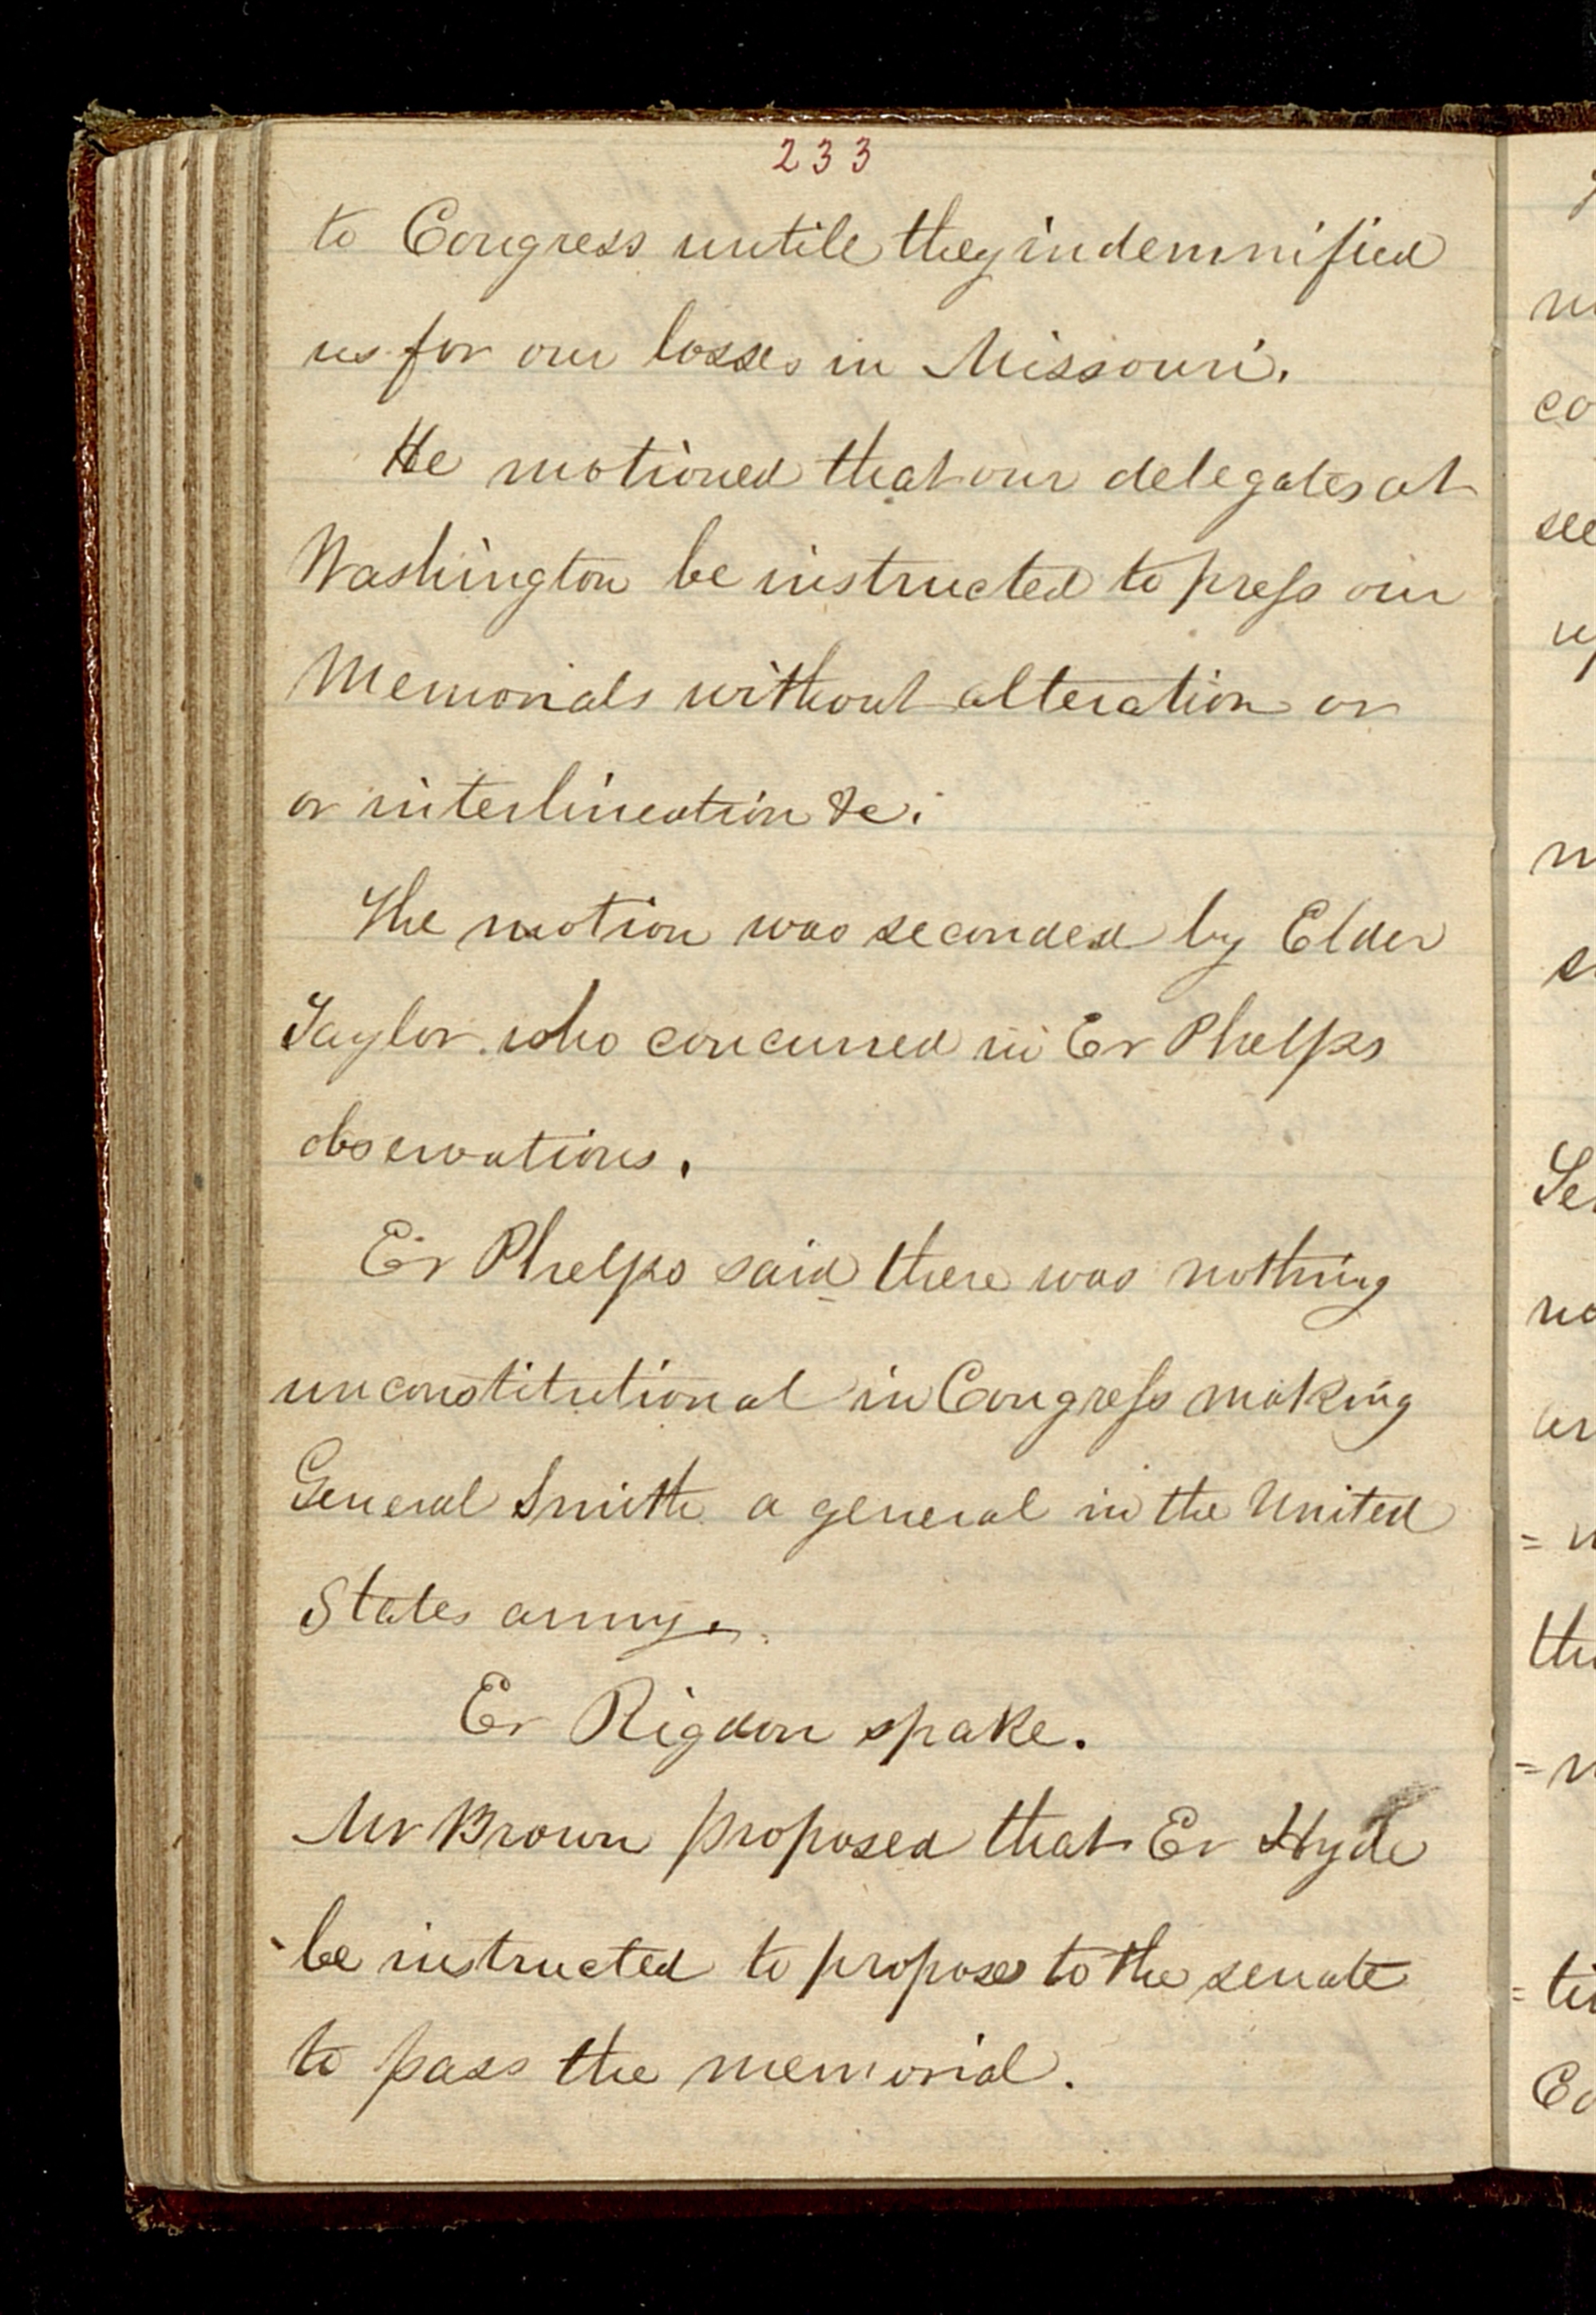 233
to Congress untile they indemnified
us for our losses in Missouri.
He motioned that our delegates at
Washington be instructed to press our
Memorials without alteration or
or interlineation &c.
The motion was seconded by Elder
Taylor who concurred in Er Phelps
observations.
Er Phelps said there was nothing
unconstitutional in Congress making
General Smith a general in the United
States army.
Er Rigdon spake.
Mr Brown proposed that Er Hyde
be instructed to propose to the senate
to pass the memorial.